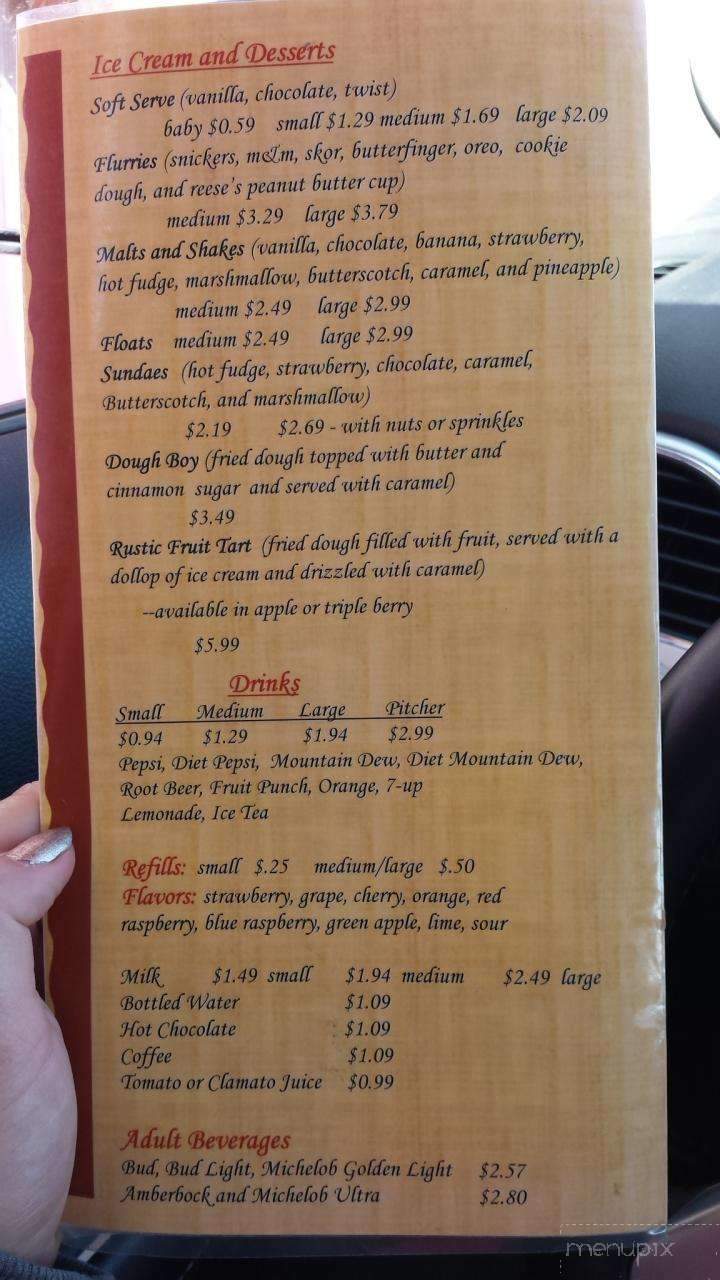 Ice Cream and Desserts
Soft Serve (vanilla, chocolate, twist)
baby $0.59 small $1.29 medium $1.69 large $2.09
Flurries (snickers, m&m, skor, butterfinger, oreo, cookie
dough, and reese's peanut butter cup)
medium $3.29 large $3.79
Malts and Shakes (vanilla, chocolate, banana, strawberry,
hot fudge, marshmallow, butterscotch, caramel, and pineapple)
medium $2.49 large $2.99
Floats medium $2.49 large $2.99
Sundaes (hot fudge, strawberry, chocolate, caramel,
Butterscotch, and marshmallow)
$2.19 $2.69 - with nuts or sprinkles
Dough Boy (fried dough topped with butter and
cinnamon sugar and served with caramel)
$3.49
Rustic Fruit Tart (fried dough filled with fruit, served with a
dollop of ice cream and drizzled with caramel)
--available in apple or triple berry
$5.99
Drinks
Small Medium Large Pitcher
$0.94 $1.29 $1.94 $2.99
Pepsi, Diet Pepsi, Mountain Dew, Diet Mountain Dew,
Root Beer, Fruit Punch, Orange, 7-up
Lemonade, Ice Tea
Refills: small $.25 medium/large $.50
Flavors: strawberry, grape, cherry, orange, red
raspberry, blue raspberry, green apple, lime, sour
Milk $1.49 small $1.94 medium $2.49 large
Bottled Water $1.09
Hot Chocolate $1.09
Coffee $1.09
Tomato or Clamato Juice $0.99
Adult Beverages
Bud, Bud Light, Michelob Golden Light $2.57
Amberbock and Michelob Ultra $2.80
menupix